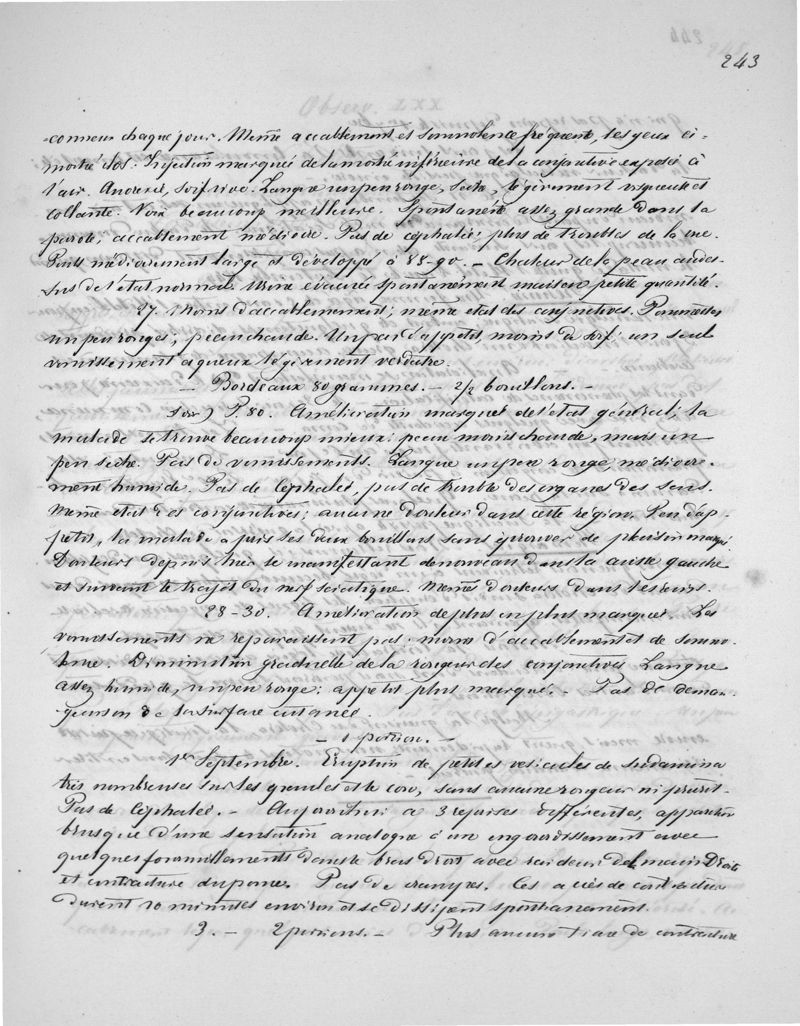 243
connus chaque jour. Même accablement et somnolence fréquente, les yeux à
moitié clos. Injection marquée de la moitié inférieure de la conjonctive exposée à
l'air. Anorexie, soif vive. Langue un peu rouge, sèche, légèrement visqueuse et
collante. Voix beaucoup meilleure. Spontanéité assez grande dans la
parole, accablement médiocre. Pas de céphalée; plus de troubles de la vue.
Pouls médiocrement large et développé à 88-90. - Chaleur de la peau au des-
sus de l'état normal. Urine évacuée spontanément mais en petite quantité.
27. Moins d'accablement; même état des conjonctives. Pommettes
un peu rouges; peau chaude. Un peu d'appétit, moins de soif: un seul
vomissement aqueux légèrement verdâtre.
- Bordeaux 80 grammes. - 2/2 bouillons. -
Soir) P. 80. Amélioration marquée de l'état général; la
malade se trouve beaucoup mieux: peau moins chaude, mais un
peu sèche. Pas de vomissements. Langue un peu rouge, médiocre-
ment humide. Pas de céphalée, pas de trouble des organes des sens.
Même état des conjonctives; aucune douleur dans cette région. Peu d'ap-
pétit, la malade a pris ses deux bouillons sans éprouver de plaisir marqué.
Douleurs depuis hier se manifestant de nouveau dans la cuisse gauche
et suivant le trajet du nerf sciatique. Mêmes douleurs dans les reins.
28-30. Amélioration de plus en plus marquée. Les
vomissements ne reparaissent pas: moins d'accablement et de somno-
lence. Diminution graduelle de la rougeur des conjonctives. Langue
assez humide, un peu rouge; appétit plus marqué. - Pas de déman-
geaison de la surface cutanée.
- 1 portion. -
1er Septembre. Eruption de petites vésicules de sudamina
très nombreuses sur les et le cou, sans aucune rougeur ni prurit.
Pas de céphalée. - Aujourd'hui à 3 reprises différentes, apparition
brusque d'une sensation analogue à un engourdissement avec
quelques fourmillements dans le bras droit avec raideur de la main droite
et contracture du pouce. Pas de crampes. Ces accès de contracture
durent 10 minutes environ et se dissipent spontanément.
3. - 2 portions. - Plus aucune trace de contracture